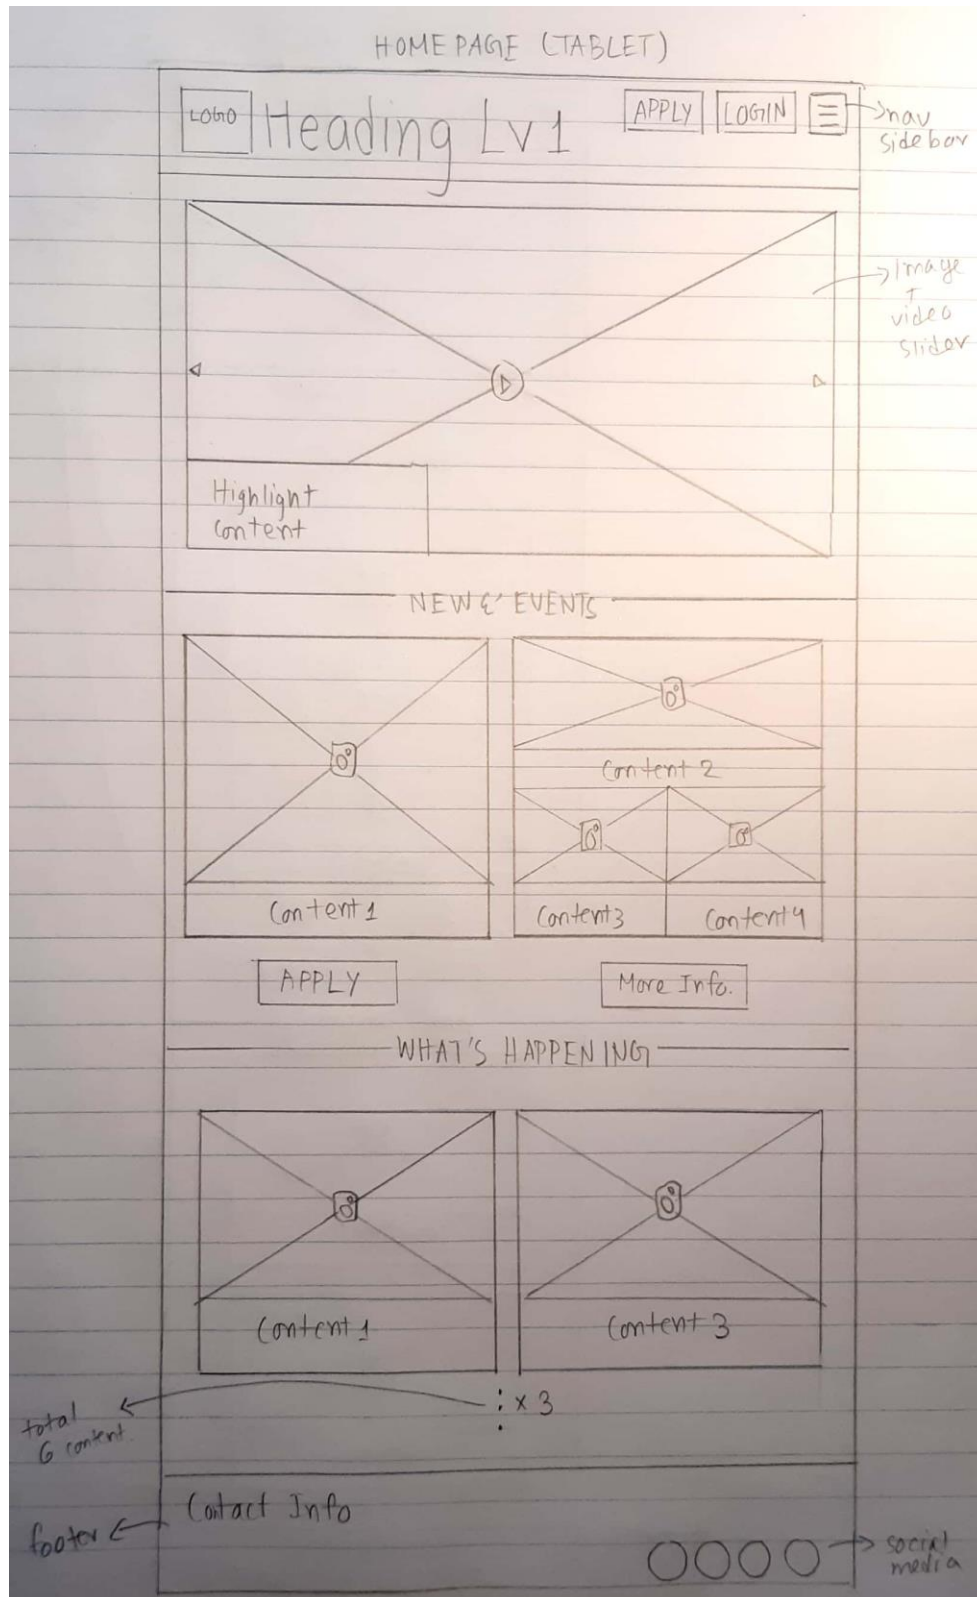 HOME PAGE (TABLET)
LOGO
Heading Lv 1
APPLY
LOGIN
nav
sidebar
image
+
video
slider
Highlight
content
NEW & EVENTS
Content 2
Content 1
Content 3
Content 4
APPLY
More Info.
WHAT'S HAPPENING
Content 1
Content 3
x 3
total
6 content
Contact Info
footer
social
media